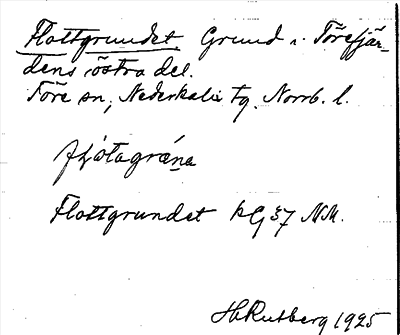 Flottgrundet Grund i Törefjär-
dens östra del.
Töre sn, Nederkalix tg. Norrb. l.
flòtagrǽna
Flottgrundet kG 37 NM.
H Rutberg 1925